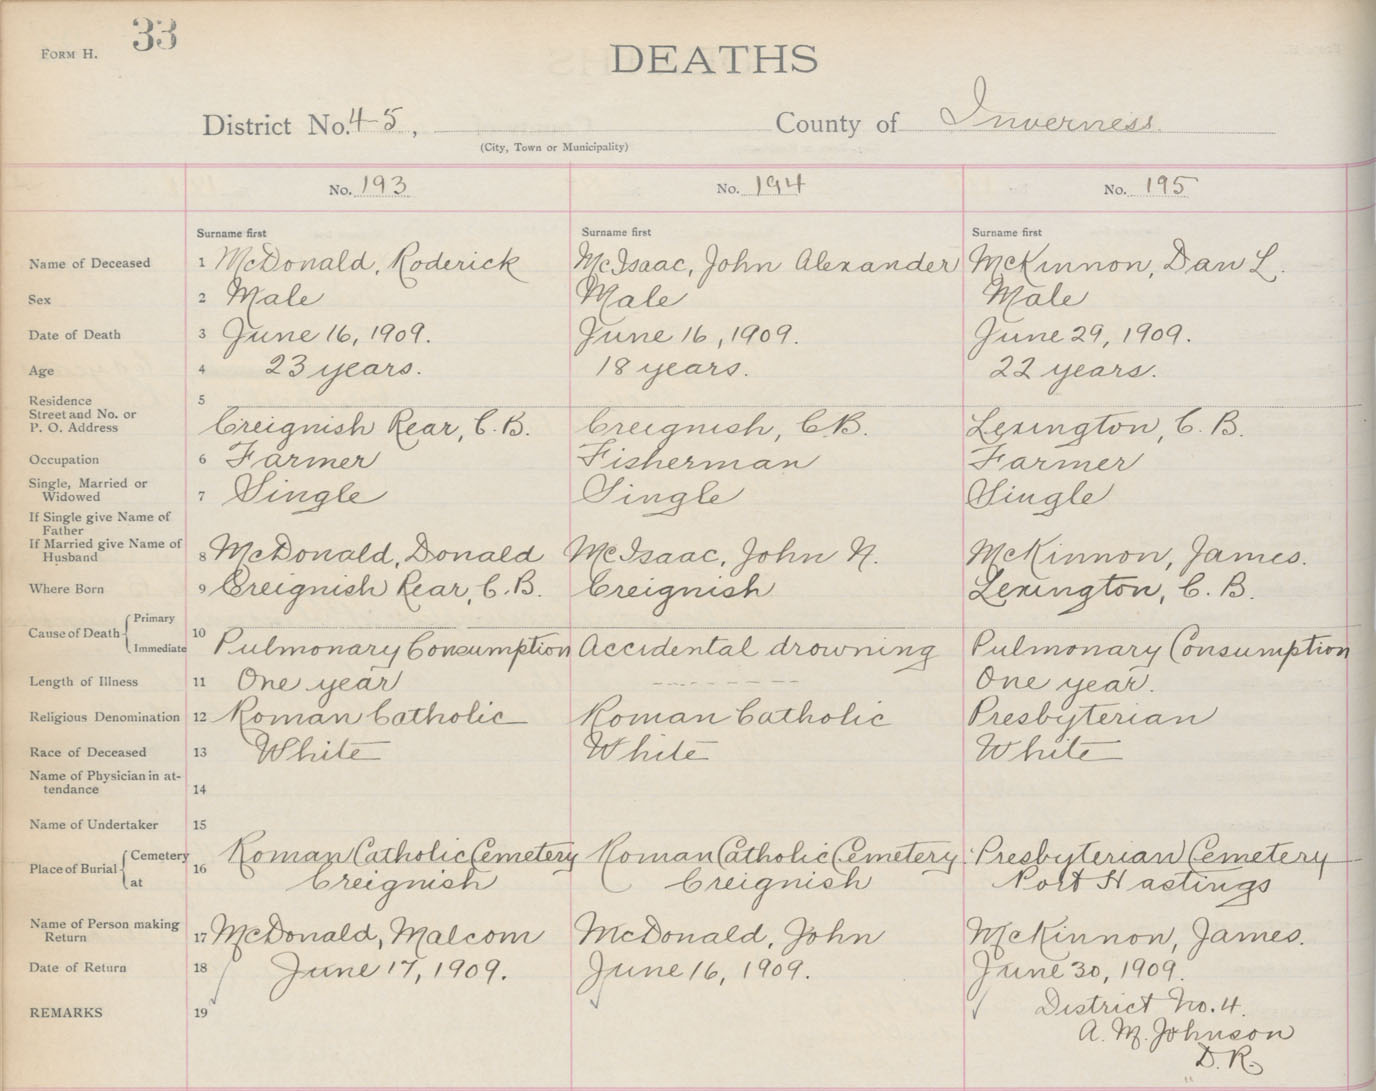 FORM H. 33
DEATHS
District No. 4-5, County of Inverness.
(City, Town or Municipality)
No. 193 No. 194 No. 195
Surname first Surname first Surname first
Name of Deceased 1 McDonald, Roderick McIsaac, John Alexander McKinnon, Dan L.
Sex 2 Male Male Male
Date of Death 3 June 16, 1909. June 16, 1909. June 29, 1909.
Age 4 23 years. 18 years. 22 years.
Residence 5
Street and No. or
P. O. Address Creignish Rear, C. B. Creignish, C.B. Lexington, C. B.
Occupation 6 Farmer Fisherman Farmer
Single, Married or
Widowed 7 Single Single Single
If Single give Name of
Father
If Married give Name of
Husband 8 McDonald, Donald McIsaac, John N. McKinnon, James.
Where Born 9 Creignish Rear, C. B. Creignish Lexington, C. B.
Primary
Cause of Death 10
Immediate Pulmonary Consumption Accidental drowning Pulmonary Consumption
Length of Illness 11 One year ------- One year.
Religious Denomination 12 Roman Catholic Roman Catholic Presbyterian
Race of Deceased 13 White White White
Name of Physician in at-
tendance 14
Name of Undertaker 15
Cemetery Roman Catholic Cemetery Roman Catholic Cemetery Presbyterian Cemetery
Place of Burial 16
at Creignish Creignish Port Hastings
Name of Person making
Return 17 McDonald, Malcom McDonald, John McKinnon, James.
Date of Return 18 June 17, 1909. June 16, 1909. June 30, 1909.
REMARKS 19 District No. 4.
A. M. Johnson
D. R.